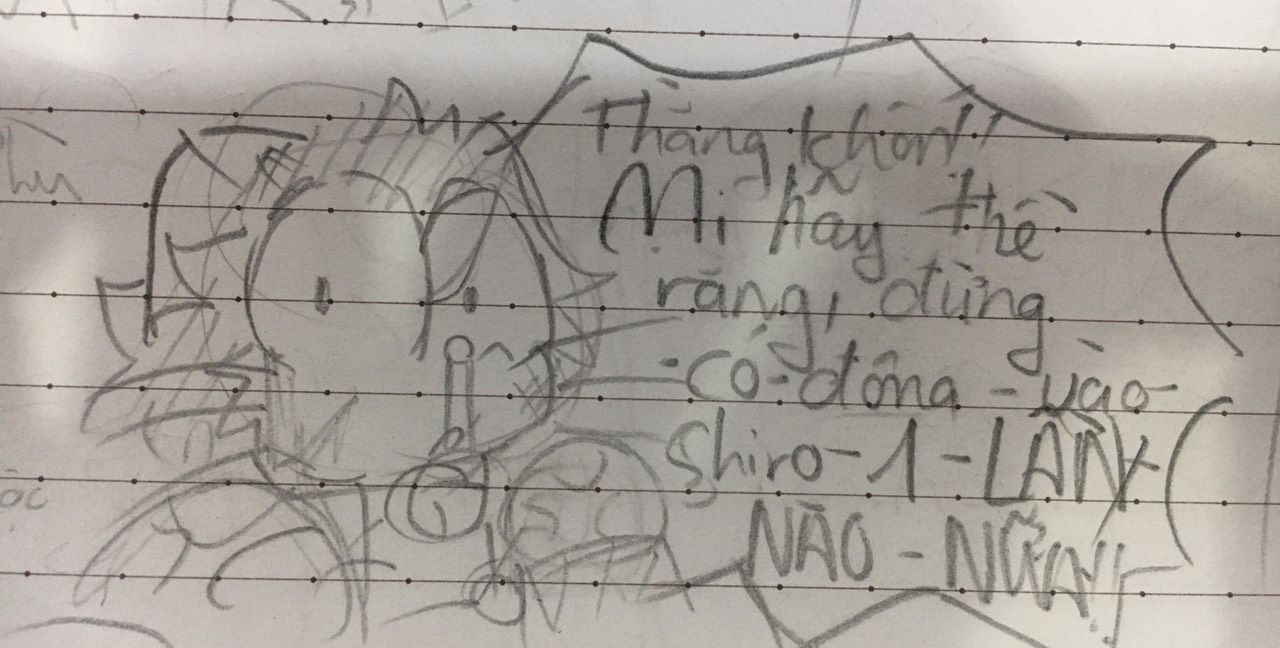 Thằng khốn!!
Mi hãy thề
rằng, đừng
-Có-động-vào-
Shiro-1-LẦN-
NÀO-NỮA!!